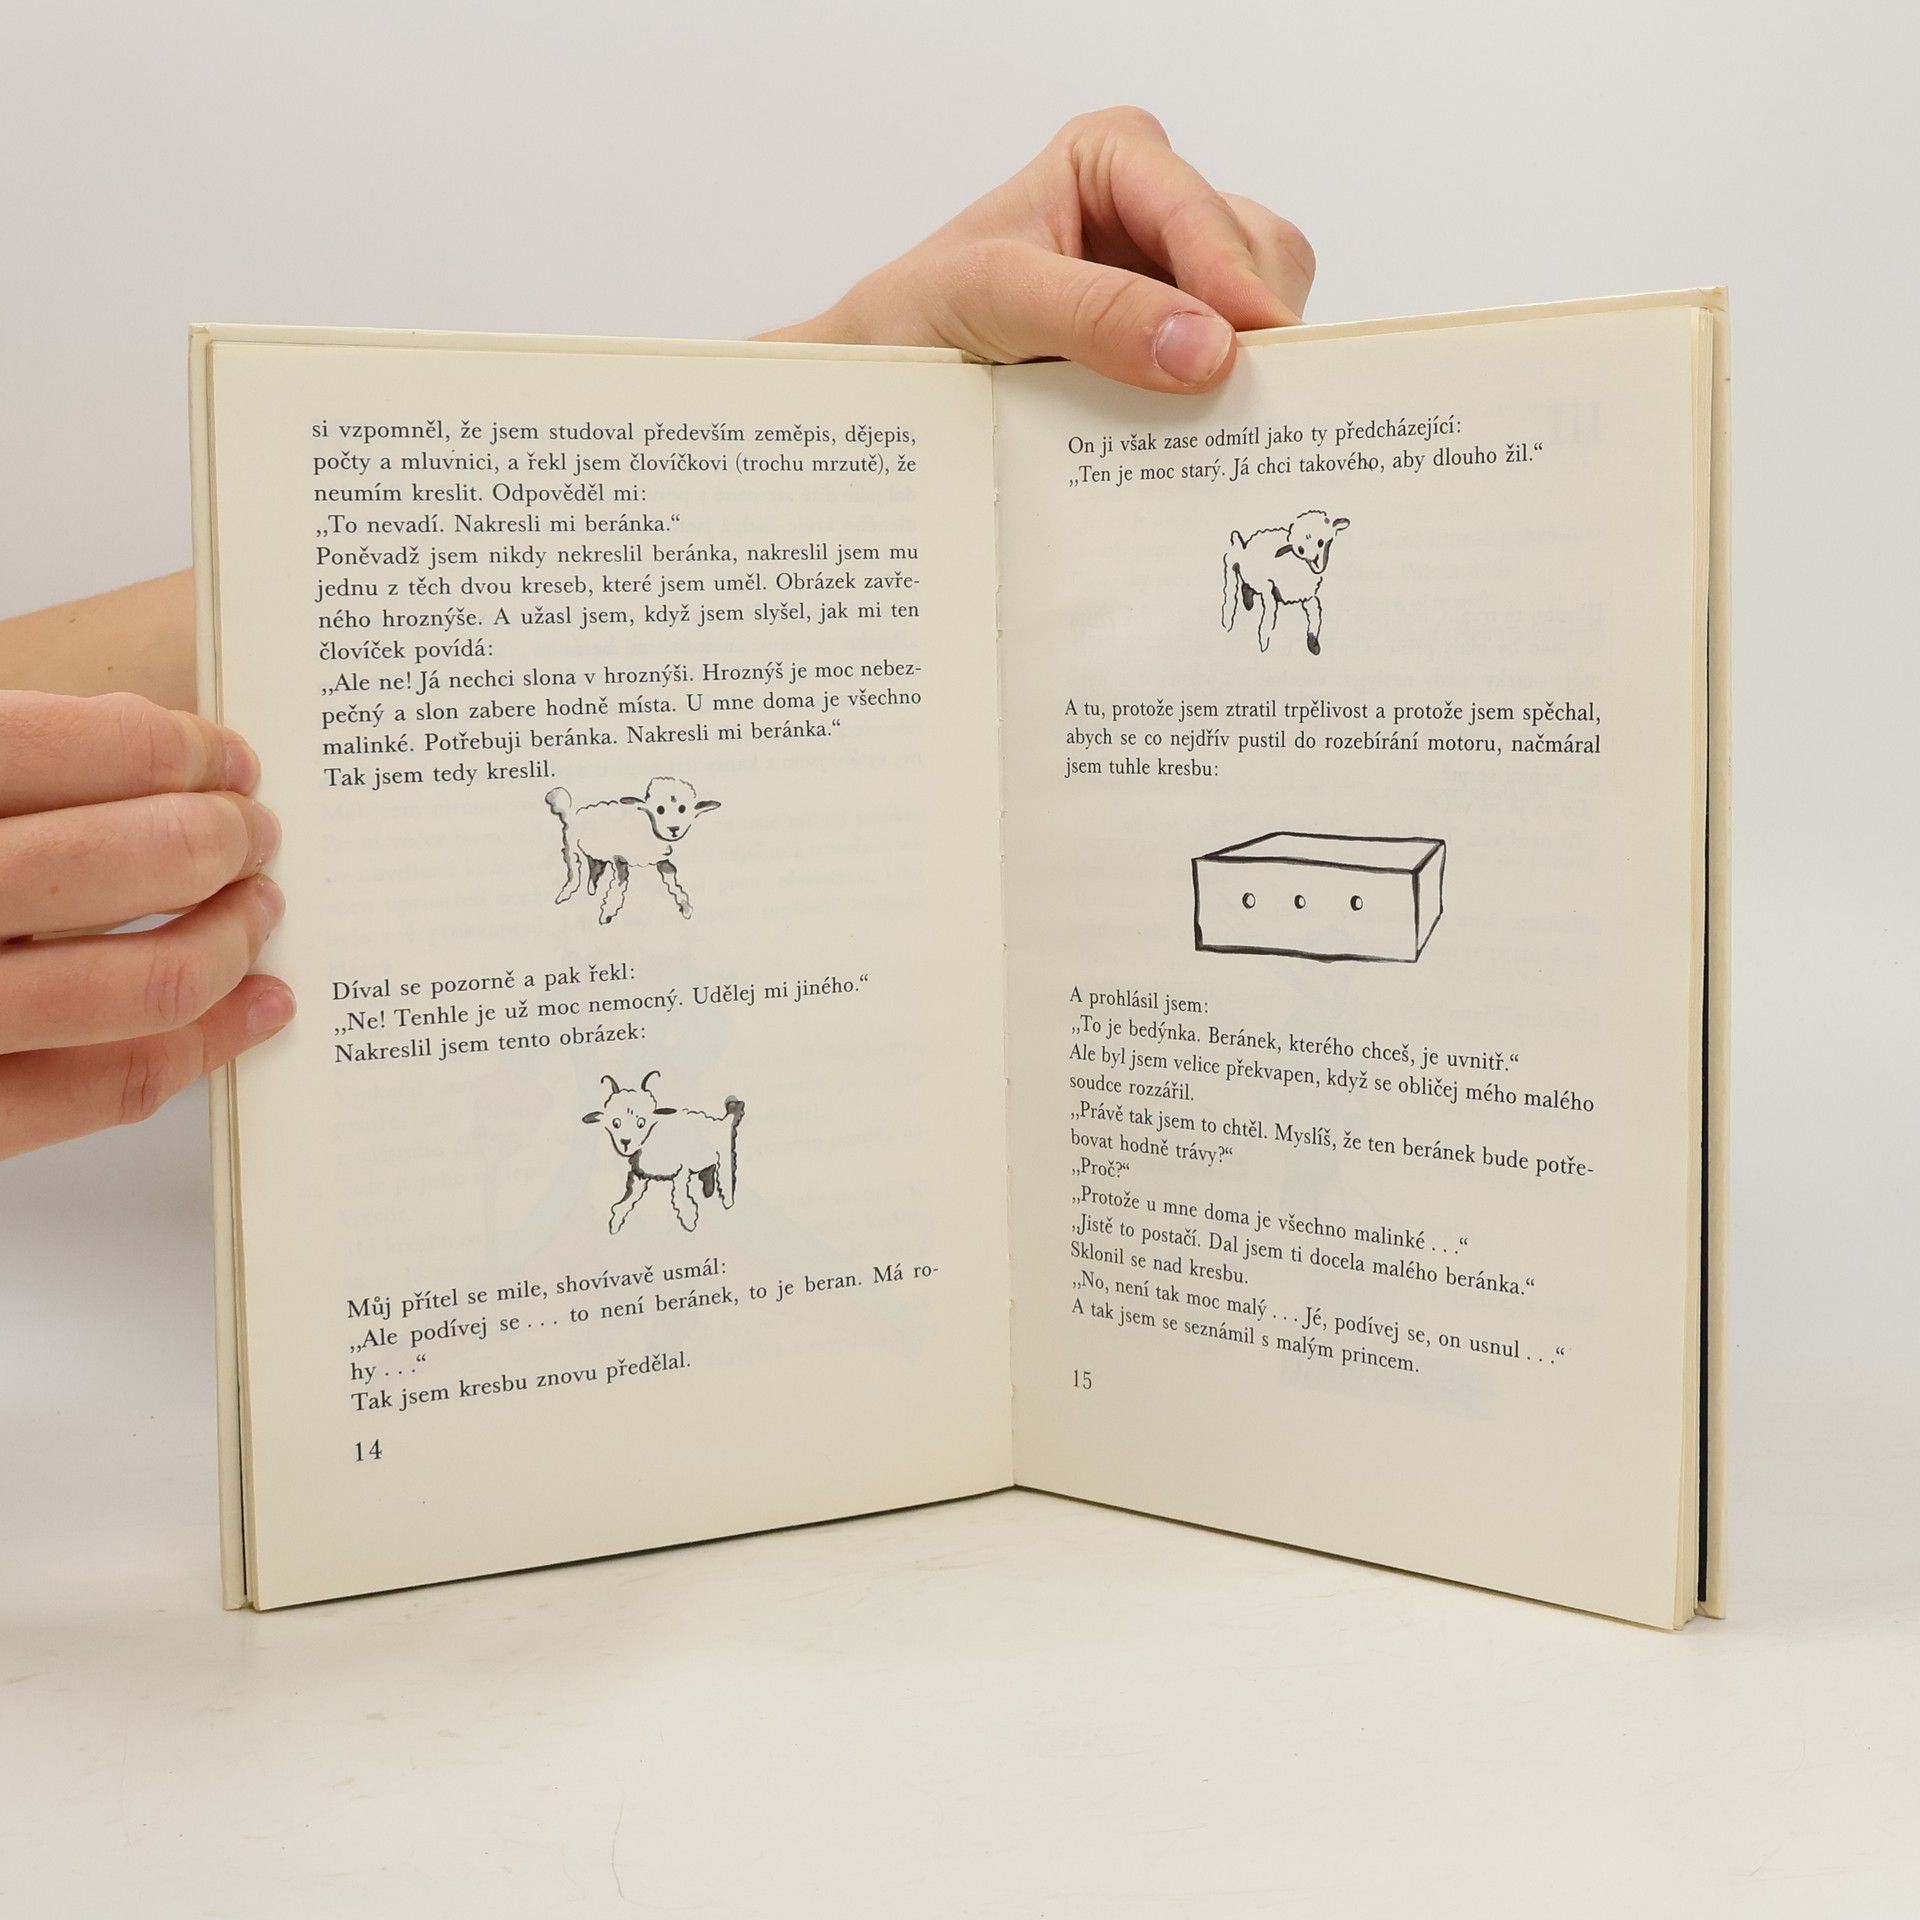 si vzpomněl, že jsem studoval především zeměpis, dějepis,
počty a mluvnici, a řekl jsem človíčkovi (trochu mrzutě), že
neumím kreslit. Odpověděl mi:
„To nevadí. Nakresli mi beránka.“
Poněvadž jsem nikdy nekreslil beránka, nakreslil jsem mu
jednu z těch dvou kreseb, které jsem uměl. Obrázek zavře-
ného hroznýše. A užasl jsem, když jsem slyšel, jak mi ten
človíček povídá:
„Ale ne! Já nechci slona v hroznýši. Hroznýš je moc nebez-
pečný a slon zabere hodně místa. U mne doma je všechno
malinké. Potřebuji beránka. Nakresli mi beránka.“
Tak jsem tedy kreslil.
Díval se pozorně a pak řekl:
„Ne! Tenhle je už moc nemocný. Udělej mi jiného.“
Nakreslil jsem tento obrázek:
Můj přítel se mile, shovívavě usmál:
„Ale podívej se . . . to není beránek, to je beran. Má ro-
hy . . .“
Tak jsem kresbu znovu předělal.
14
On ji však zase odmítl jako ty předcházející:
„Ten je moc starý. Já chci takového, aby dlouho žil.“
A tu, protože jsem ztratil trpělivost a protože jsem spěchal,
abych se co nejdřív pustil do rozebírání motoru, načmáral
jsem tuhle kresbu:
A prohlásil jsem:
„To je bedýnka. Beránek, kterého chceš, je uvnitř.“
Ale byl jsem velice překvapen, když se obličej mého malého
soudce rozzářil.
„Právě tak jsem to chtěl. Myslíš, že ten beránek bude potře-
bovat hodně trávy?“
„Proč?“
„Protože u mne doma je všechno malinké . . .“
„Jistě to postačí. Dal jsem ti docela malého beránka.“
Sklonil se nad kresbu.
„No, není tak moc malý . . . Jé, podívej se, on usnul . . .“
A tak jsem se seznámil s malým princem.
15